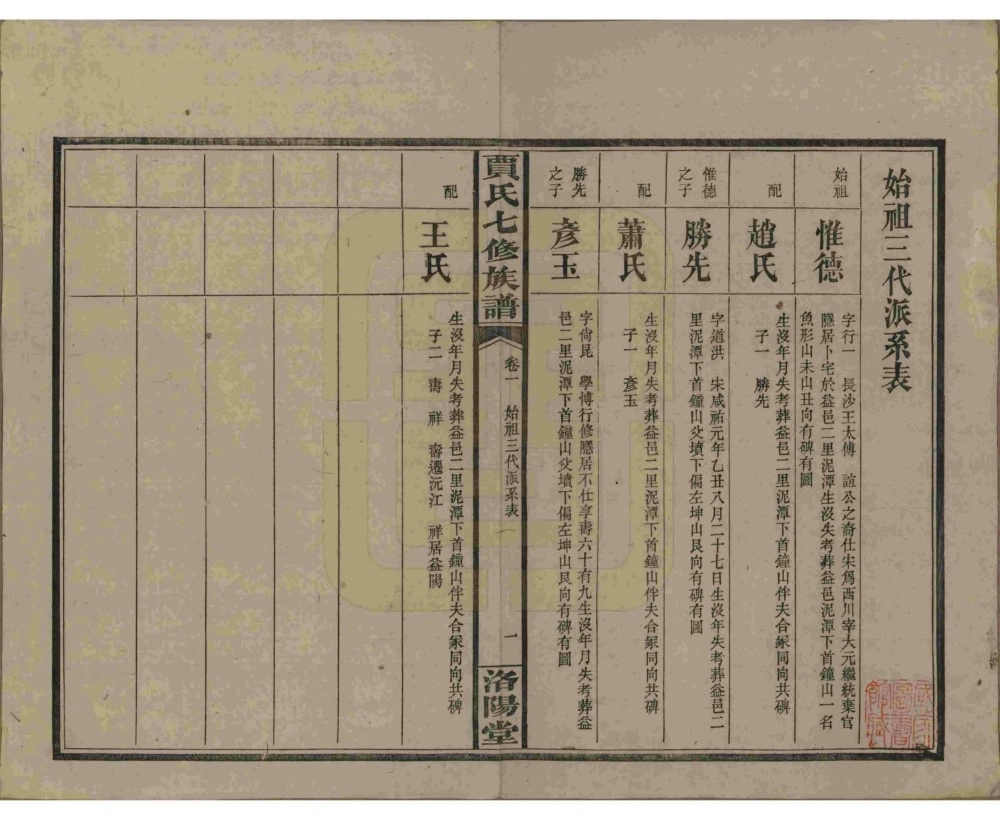 始祖三代派系表
始祖
惟德
字行一　長沙王太傅　誼公之裔仕宋爲西川宰大元繼統棄官
隱居卜宅於益邑二里泥潭生沒失考葬益邑泥潭下首鐘山一名
魚形山未山丑向有碑有圖
配
趙氏
生沒年月失考葬益邑二里泥潭下首鐘山伴夫合冢同向共碑
子一　勝先
惟德
之子
勝先
字道洪　宋咸祐元年乙丑八月二十七日生沒年失考葬益邑二
里泥潭下首鐘山父墳下偏左坤山艮向有碑有圖
配
蕭氏
生沒年月失考葬益邑二里泥潭下首鐘山伴夫合冢同向共碑
子一　彥玉
勝先
之子
彥玉
字尙昆　學博行修隱居不仕享壽六十有九生沒年月失考葬益
邑二里泥潭下首鐘山父墳下偏左坤山艮向有碑有圖
賈氏七修族譜
卷一　始祖三代派系表
一
洛陽堂
配
王氏
生沒年月失考葬益邑二里泥潭下首鐘山伴夫合冢同向共碑
子二　壽　祥　壽遷沅江　祥居益陽